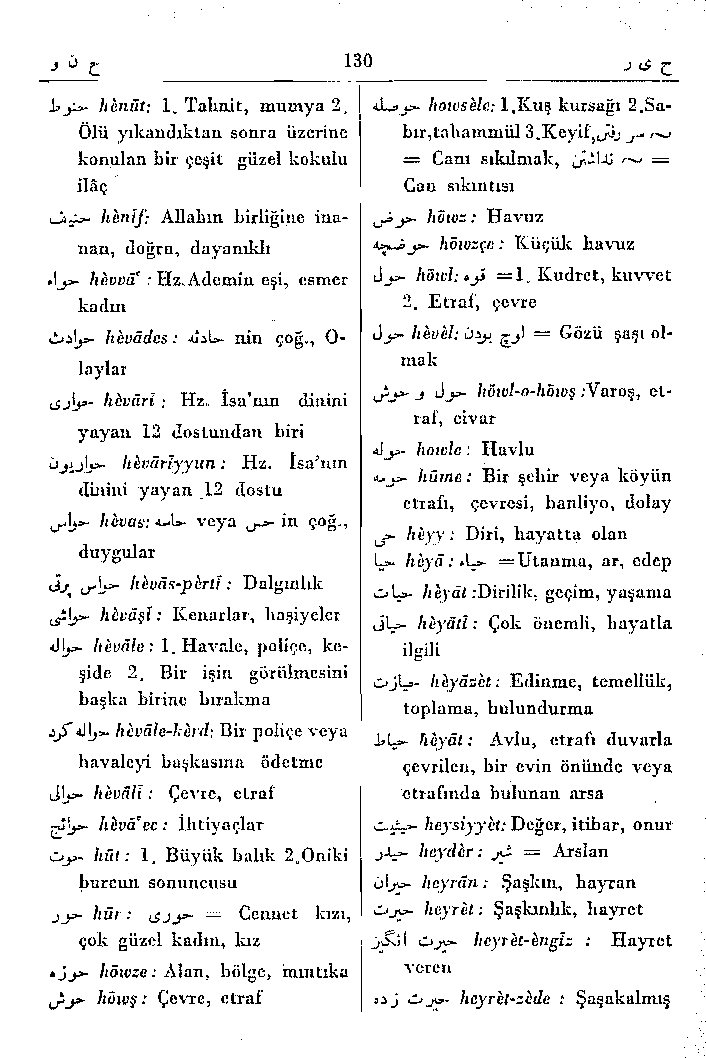 ح ن و
130
ح ى ر
حنوط hènūt: 1. Tahnit, mumya 2.
Ölü yıkandıktan sonra üzerine
konulan bir çeşit güzel kokulu
ilâç
حنيف hènîf: Allahın birliğine ina-
nan, doğru, dayanıklı
حواء hèvvā' : Hz.Ademin eşi, esmer
kadın
حوادث hèvādes: حادثه nin çoğ., O-
laylar
حوارى hèvārî : Hz. İsa'nın dinini
yayan 12 dostundan biri
حواريون hèvārîyyun: Hz. İsa'nın
dinini yayan 12 dostu
حواس hèvas: حاسه veya حس in çoğ.,
duygular
حواس پرتى hèvās-pèrtî : Dalgınlık
حواشى hèvāşî : Kenarlar, haşiyeler
حواله hèvāle : 1. Havale, poliçe, ke-
şide 2. Bir işin görülmesini
başka birine bırakma
حواله كرد hèvāle-kèrd: Bir poliçe veya
havaleyi başkasına ödetme
حوالى hèvālî : Çevre, etraf
حوائج hèvā'ec : İhtiyaçlar
حوت hūt : 1. Büyük balık 2.Oniki
burcun sonuncusu
حور hūr : حورى = Cennet kızı,
çok güzel kadın, kız
حوزه hōwze : Alan, bölge, mıntıka
حوش hōwş : Çevre, etraf
حوصله howsèle: 1.Kuş kursağı 2.Sa-
bır,tahammül 3.Keyif, ~ سر رفتن
= Canı sıkılmak, ~ نداشتن =
Can sıkıntısı
حوض hōwz : Havuz
حوضچه hōwzçe : Küçük havuz
حول hōwl: قوه =1. Kudret, kuvvet
2. Etraf, çevre
حول hèvèl: لوچ بودن = Gözü şaşı ol-
mak
حول و حوش hōwl-o-hōwş :Varoş, et-
raf, civar
حوله howle : Havlu
حومه hūme : Bir şehir veya köyün
etrafı, çevresi, banliyo, dolay
حى hèyy : Diri, hayatta olan
حيا hèyā : حياء =Utanma, ar, edep
حيات hèyāt :Dirilik, geçim, yaşama
حياتى hèyātî : Çok önemli, hayatla
ilgili
حيازت hèyāzèt : Edinme, temellük,
toplama, bulundurma
حياط hèyāt : Avlu, etrafı duvarla
çevrilen, bir evin önünde veya
etrafında bulunan arsa
حيثيت heysiyyèt: Değer, itibar, onur
حيدر heydèr : شير = Arslan
حيران heyrān : Şaşkın, hayran
حيرت heyrèt : Şaşkınlık, hayret
حيرت انگيز heyrèt-èngîz : Hayret
veren
حيرت زده heyrèt-zède : Şaşakalmış